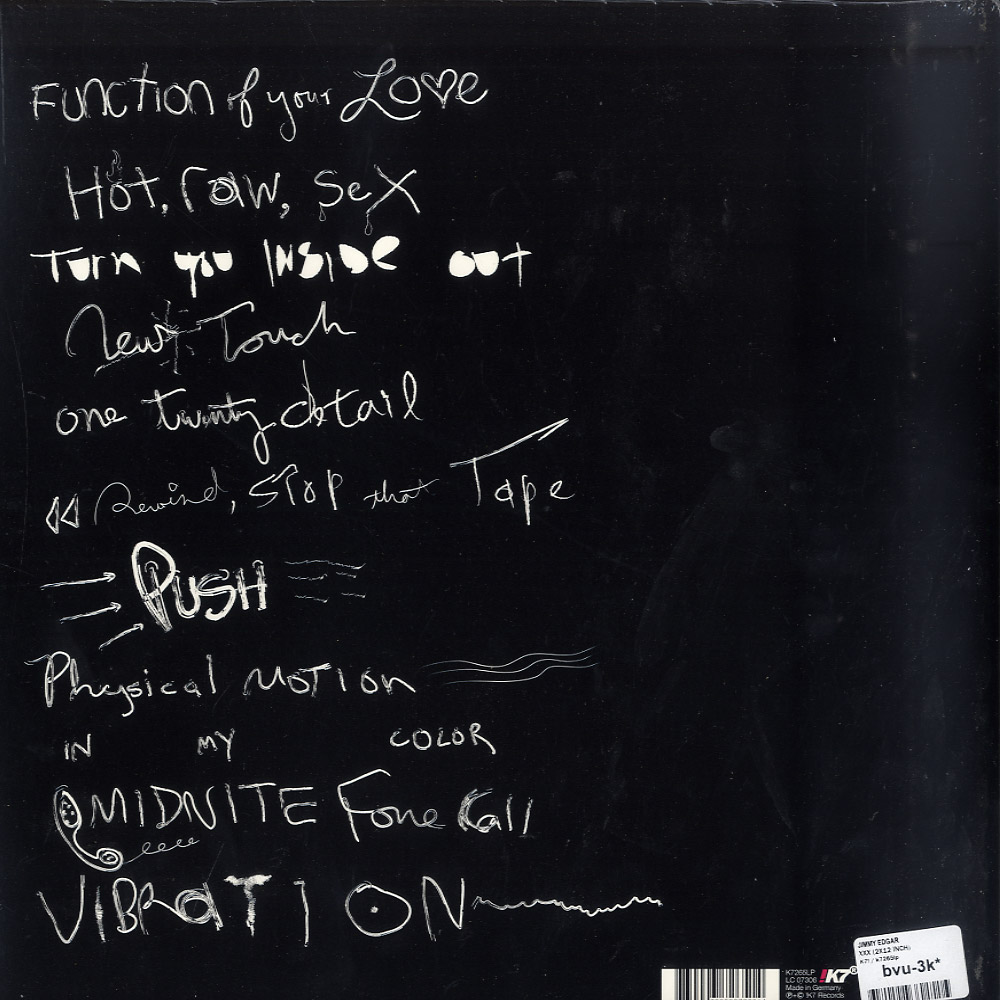 Function of your Love
Hot, raw, sex
Turn you inside out
New Touch
one twenty detail
Rewind, stop that Tape
Push
Physical Motion
IN MY COLOR
MIDNITE Fone Call
VIBRATION
K7265LP
LC 07306
Made in Germany
℗+© !K7 Records
!K7®
JIMMY EDGAR
XXX (2X12 INCH)
K7! / k7265lp
bvu-3k*